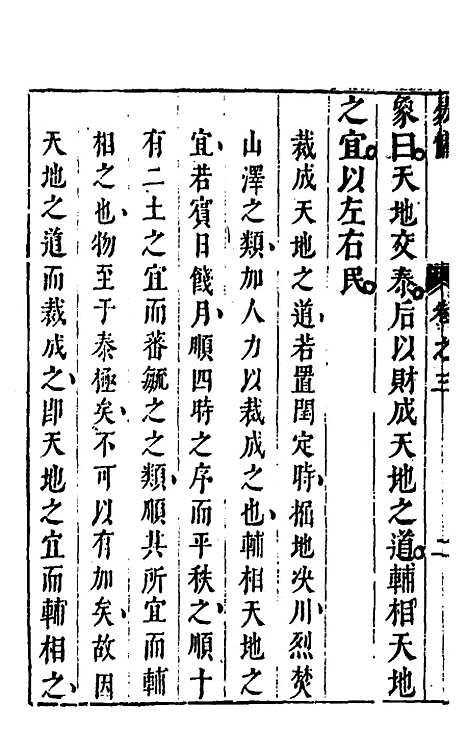 卷之三 二
象曰天地交泰后以財成天地之道輔相天地
之宜以左右民
裁成天地之道若置閏定時掘地决川烈焚
山澤之類加人力以裁成之也輔相天地之
宜若賓日餞月順四時之序而平秩之順十
有二土之宜而蕃毓之之類順其所宜而輔
相之也物至于泰極矣不可以有加矣故因
天地之道而裁成之卽天地之宜而輔相之